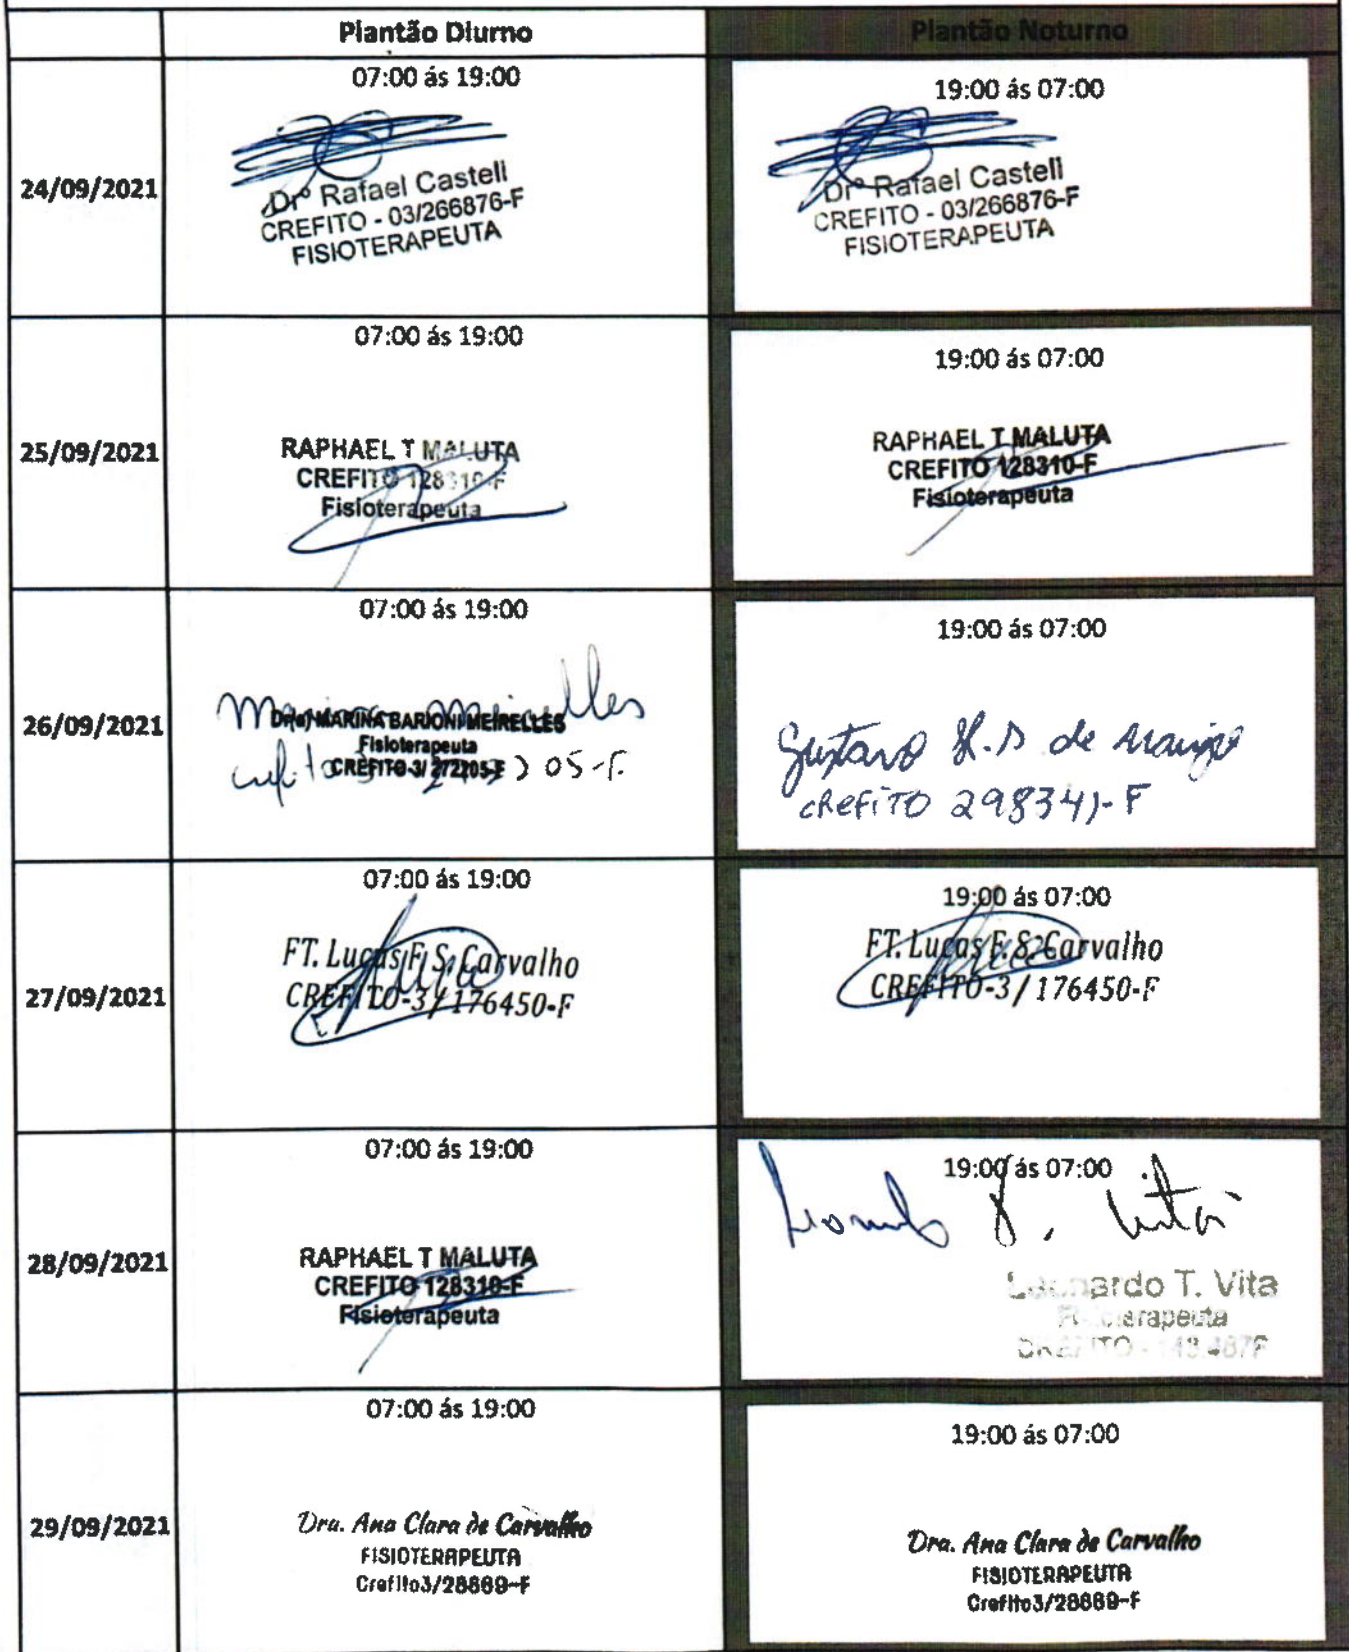 Plantão Diurno
Plantão Noturno
24/09/2021
07:00 ás 19:00
Drº Rafael Castell
CREFITO - 03/266876-F
FISIOTERAPEUTA
19:00 ás 07:00
Drº Rafael Castell
CREFITO - 03/266876-F
FISIOTERAPEUTA
25/09/2021
07:00 ás 19:00
RAPHAEL T MALUTA
CREFITO 128310-F
Fisioterapeuta
19:00 ás 07:00
RAPHAEL T MALUTA
CREFITO 128310-F
Fisioterapeuta
26/09/2021
07:00 ás 19:00
Dr(a) MARINA BARIONI MEIRELLES
Fisioterapeuta
CREFITO-3/ 272205-F
19:00 ás 07:00
Gustavo H.S de Araujo
CREFITO 298341-F
27/09/2021
07:00 ás 19:00
FT. Lucas F. S. Carvalho
CREFITO-3 / 176450-F
19:00 ás 07:00
FT. Lucas F. S. Carvalho
CREFITO-3 / 176450-F
28/09/2021
07:00 ás 19:00
RAPHAEL T MALUTA
CREFITO 128310-F
Fisioterapeuta
19:00 ás 07:00
Leonardo T. Vita
Fisioterapeuta
CREFITO
29/09/2021
07:00 ás 19:00
Dra. Ana Clara de Carvalho
FISIOTERAPEUTA
Crefito3/28889-F
19:00 ás 07:00
Dra. Ana Clara de Carvalho
FISIOTERAPEUTA
Crefito3/28889-F